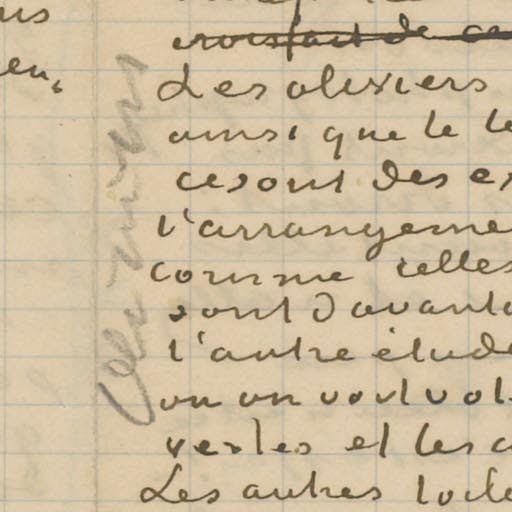 us
en,
croissant de ce
Les oliviers
ainsi que le
ce sont des ex
l'arrangeme
comme celles
sont davanta
l'autre étude
on on voit vol
vertes et les
Les autres toile